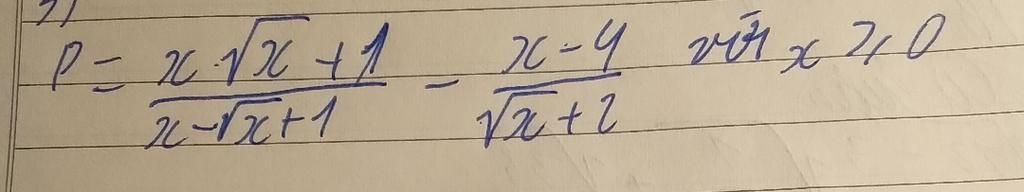 P = \frac{x\sqrt{x}+1}{x-\sqrt{x}+1} - \frac{x-4}{\sqrt{x}+2} với x ≥ 0